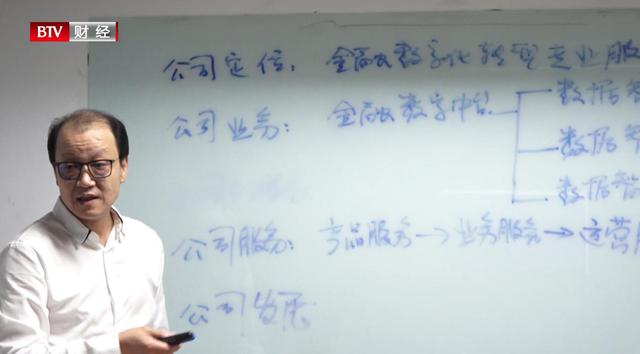 BTV 财经
公司定位: 金融数字化转型专业服
公司业务: 金融数字中台
数据
数据
数据
公司服务: 产品服务→业务服务→运营
公司发展